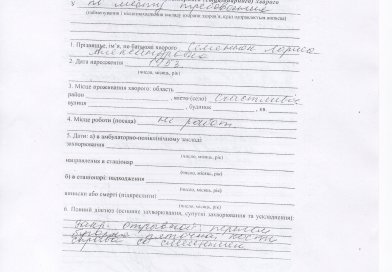 (амбулаторного) хворого
у по месту требования
(найменування і місцезнаходження закладу охорони здоров'я, куди направляється виписка)
1. Прізвище, ім'я, по батькові хворого Семенюк Лариса
Александровна
2. Дата народження 1953
(число, місяць, рік)
3. Місце проживання хворого: область
район , місто (село) Счастливое
вулиця , будинок , кв.
4. Місце роботи (посада) не работ.
5. Дати: а) в амбулаторно-поліклінічному закладі:
захворювання
(число, місяць, рік)
направлення в стаціонар
(число, місяць, рік)
б) в стаціонарі: надходження
(число, місяць, рік)
виписки або смерті (підкреслити)
(число, місяць, рік)
6. Повний діагноз (основне захворювання, супутні захворювання та ускладнення):
Закр. отрывной перелом
пяточной кости
со смещением